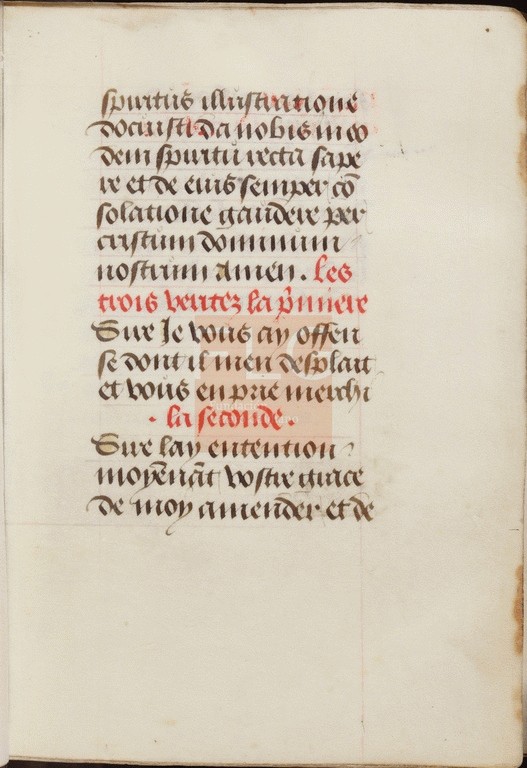 spiritus illustratione
docuisti da nobis in eo
dem spiritu recta sape
re et de eius semper cõ
solatione gaudere per
cristum dominum
nostrum amen. Les
trois veritez la p̃miere
Sire Je vous ay offen
se dont il men desplait
et vous en prie merchi
· la seconde ·
Sire Jay entention
moyenãt vostre grace
de moy amender et de